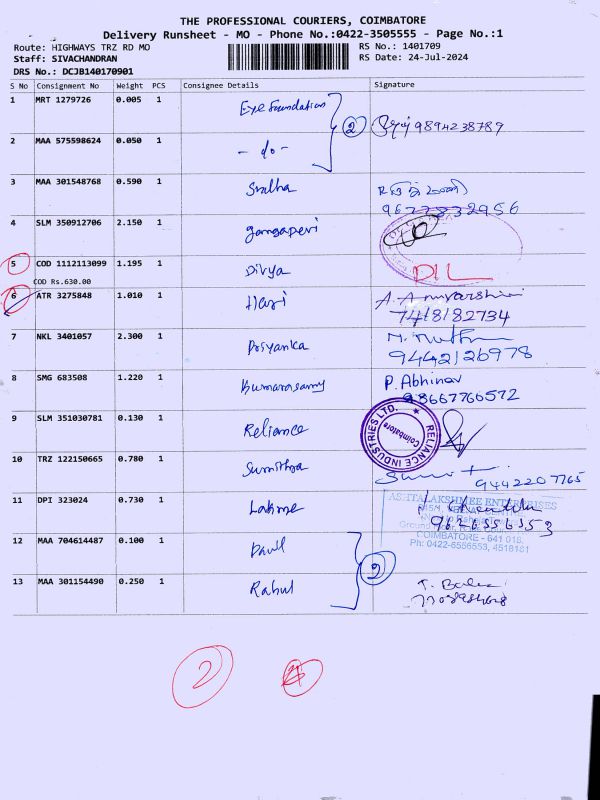 THE PROFESSIONAL COURIERS, COIMBATORE
Delivery Runsheet - MO - Phone No.:0422-3505555 - Page No.:1
Route: HIGHWAYS TRZ RD MO
RS No.: 1401709
Staff: SIVACHANDRAN
RS Date: 24-Jul-2024
DRS No.: DCJB140170901
S No Consignment No. Weight PCS Consignee Details Signature
1 MRT 1279726 0.005 1 Eye Foundation
2 9894238789
2 MAA 575598624 0.050 1 - do -
3 MAA 301548768 0.590 1
9677832956
4 SLM 350912706 2.150 1 gangadevi
5 COD 1112113099 1.195 1 Divya DIL
COD Rs.630.00
6 ATR 3275848 1.010 1 Hari
7418182734
7 NKL 3401057 2.300 1 Priyanka
9442126978
8 SMG 683508 1.220 1 Kumarasamy P. Abhinav
9 SLM 351030781 0.130 1 Reliance
RELIANCE INDUSTRIES LTD.
Coimbatore
10 TRZ 122150665 0.780 1 Sumithra
9442207765
11 DPI 323024 0.730 1 Lakme
ASHTALAKSHMEE ENTERPRISES
COIMBATORE - 641 018.
Ph: 0422-6556553, 4518181
12 MAA 704614487 0.100 1 Paul
2
13 MAA 301154490 0.250 1 Rahul
2